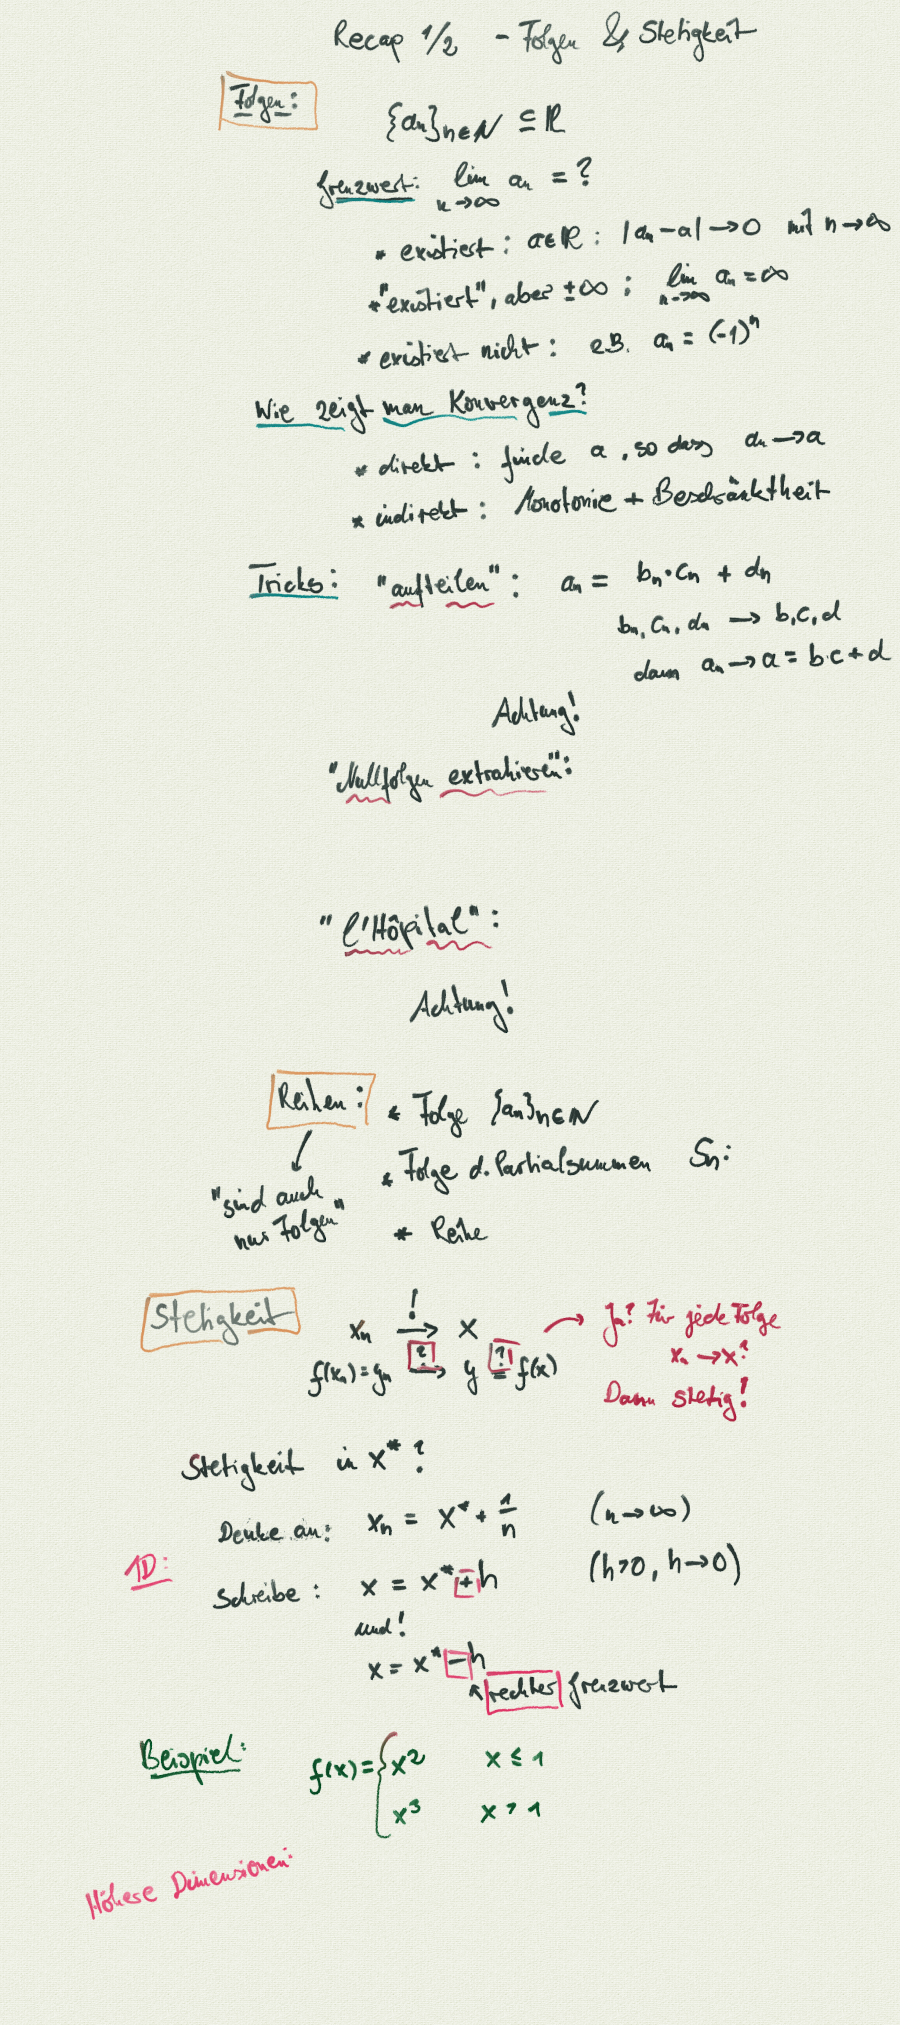 Recap 1/2 - Folgen & Stetigkeit
Folgen:
{an}n∈N ⊆ R
Grenzwert: lim n→∞ an = ?
* existiert: a∈R: |an - a| → 0 mit n→∞
* "existiert", aber ±∞; lim n→∞ an = ∞
* existiert nicht: z.B. an = (-1)^n
Wie zeigt man Konvergenz?
* direkt: finde a, so dass an → a
* indirekt: Monotonie + Beschränktheit
Tricks: "aufteilen": an = bn · cn + dn
bn, cn, dn → b, c, d
dann an → a = b·c + d
Achtung!
"Nullfolgen extrahieren":
"l'Hôpital":
Achtung!
Reihen: * Folge {an}n∈N
* Folge d. Partialsummen Sn:
"sind auch
nur Folgen"
* Reihe
Stetigkeit
xn →! x → Ja? Für jede Folge
xn → x?
f(xn) = yn →? y =? f(x)
Dann stetig!
Stetigkeit in x*?
Denke an: xn = x* + 1/n (n→∞)
1D:
Schreibe: x = x* + h (h>0, h→0)
und!
x = x* - h
↖ rechter Grenzwert
Beispiel: f(x) = { x² x ≤ 1
x³ x > 1
Höhere Dimensionen: